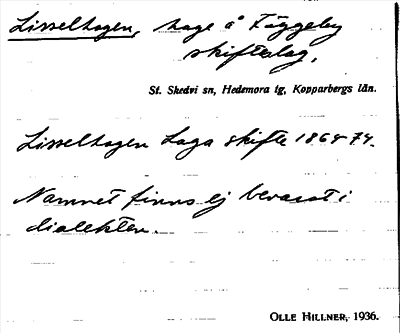 Lisselhagen, hage å Fäggeby
skifteslag.
St. Skedvi sn, Hedemora tg, Kopparbergs län.
Lisselhagen Laga skifte 1869-74.
Namnet finns ej bevarat i
dialekten.
OLLE HILLNER, 1936.